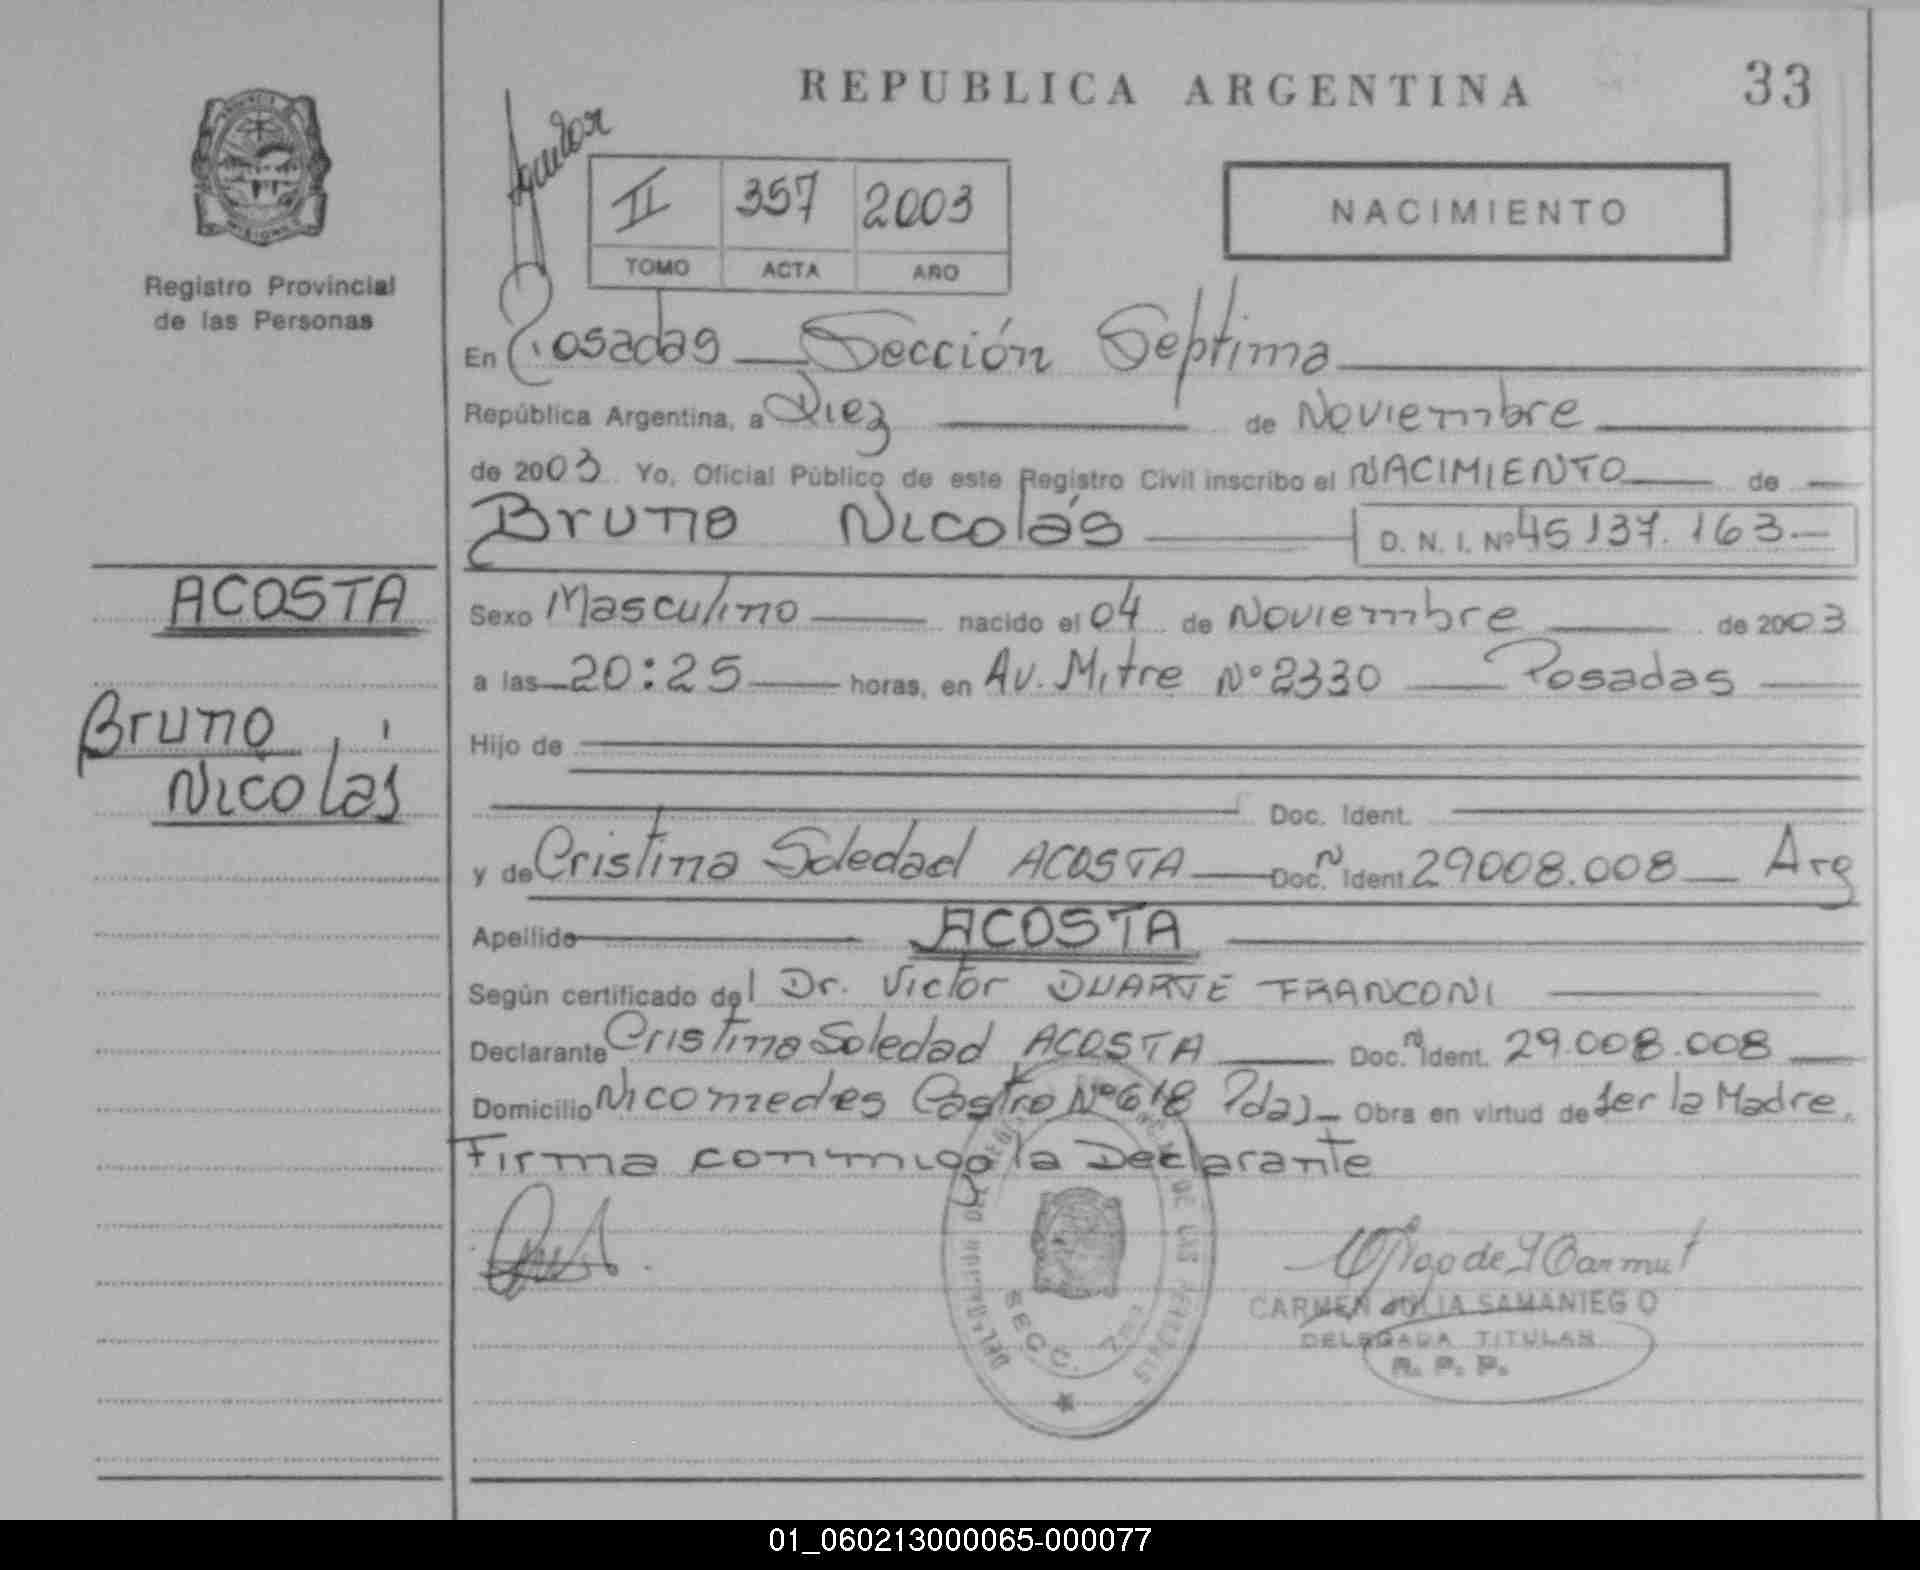 REPUBLICA ARGENTINA
33
Aguilar
II 357 2003
TOMO ACTA AÑO
NACIMIENTO
Registro Provincial
de las Personas
En Posadas Sección Septima
República Argentina, a Diez de Noviembre
de 2003 Yo, Oficial Público de este Registro Civil inscribo el NACIMIENTO de
Bruno Nicolás D. N. I. Nº 45.137.163.-
ACOSTA
Bruno
Nicolás
Sexo Masculino nacido el 04 de Noviembre de 2003
a las 20:25 horas, en Av. Mitre Nº 2330 Posadas
Hijo de
Doc. Ident.
y de Cristina Soledad ACOSTA Doc. N Ident. 29008.008 Arg
Apellido ACOSTA
Según certificado del Dr. Victor DUARTE FRANCONI
Declarante Cristina Soledad ACOSTA Doc. N Ident. 29.008.008
Domicilio Nicomedes Castro Nº 618 Pdas Obra en virtud de ser la Madre.
Firma conmigo la Declarante
SECC. 7
CARMEN JULIA SAMANIEGO
DELEGADA TITULAR
R. P. P.
01_060213000065-000077